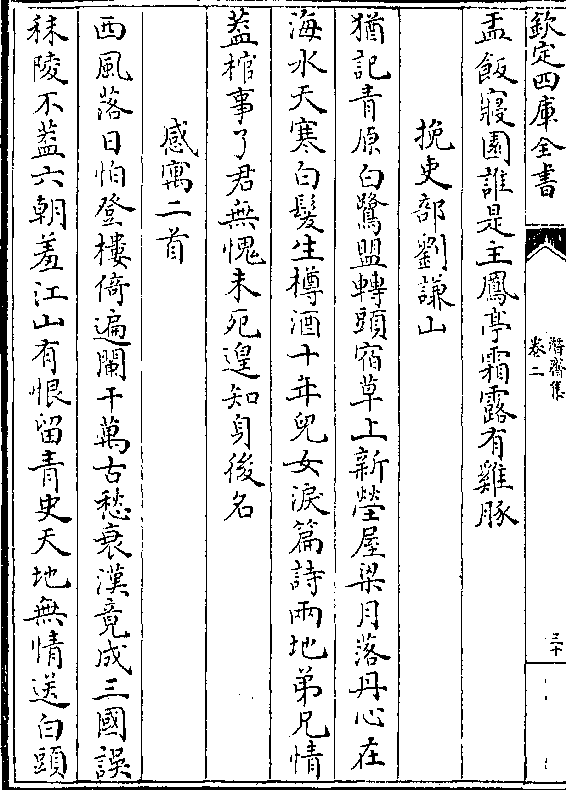 欽定四庫全書
潛齋集
卷二
三十
盂飯寢園誰是主鳳亭霜露有雞豚
挽吏部劉謙山
猶記青原白鷺盟轉頭宿草上新塋屋梁月落丹心在
海水天寒白髮生樽酒十年兒女淚篇詩兩地弟兄情
葢棺事了君無愧未死遑知身後名
感寓二首
西風落日怕登樓倚遍闌干萬古愁衰漢竟成三國誤
秣陵不葢六朝羞江山有恨留青史天地無情送白頭